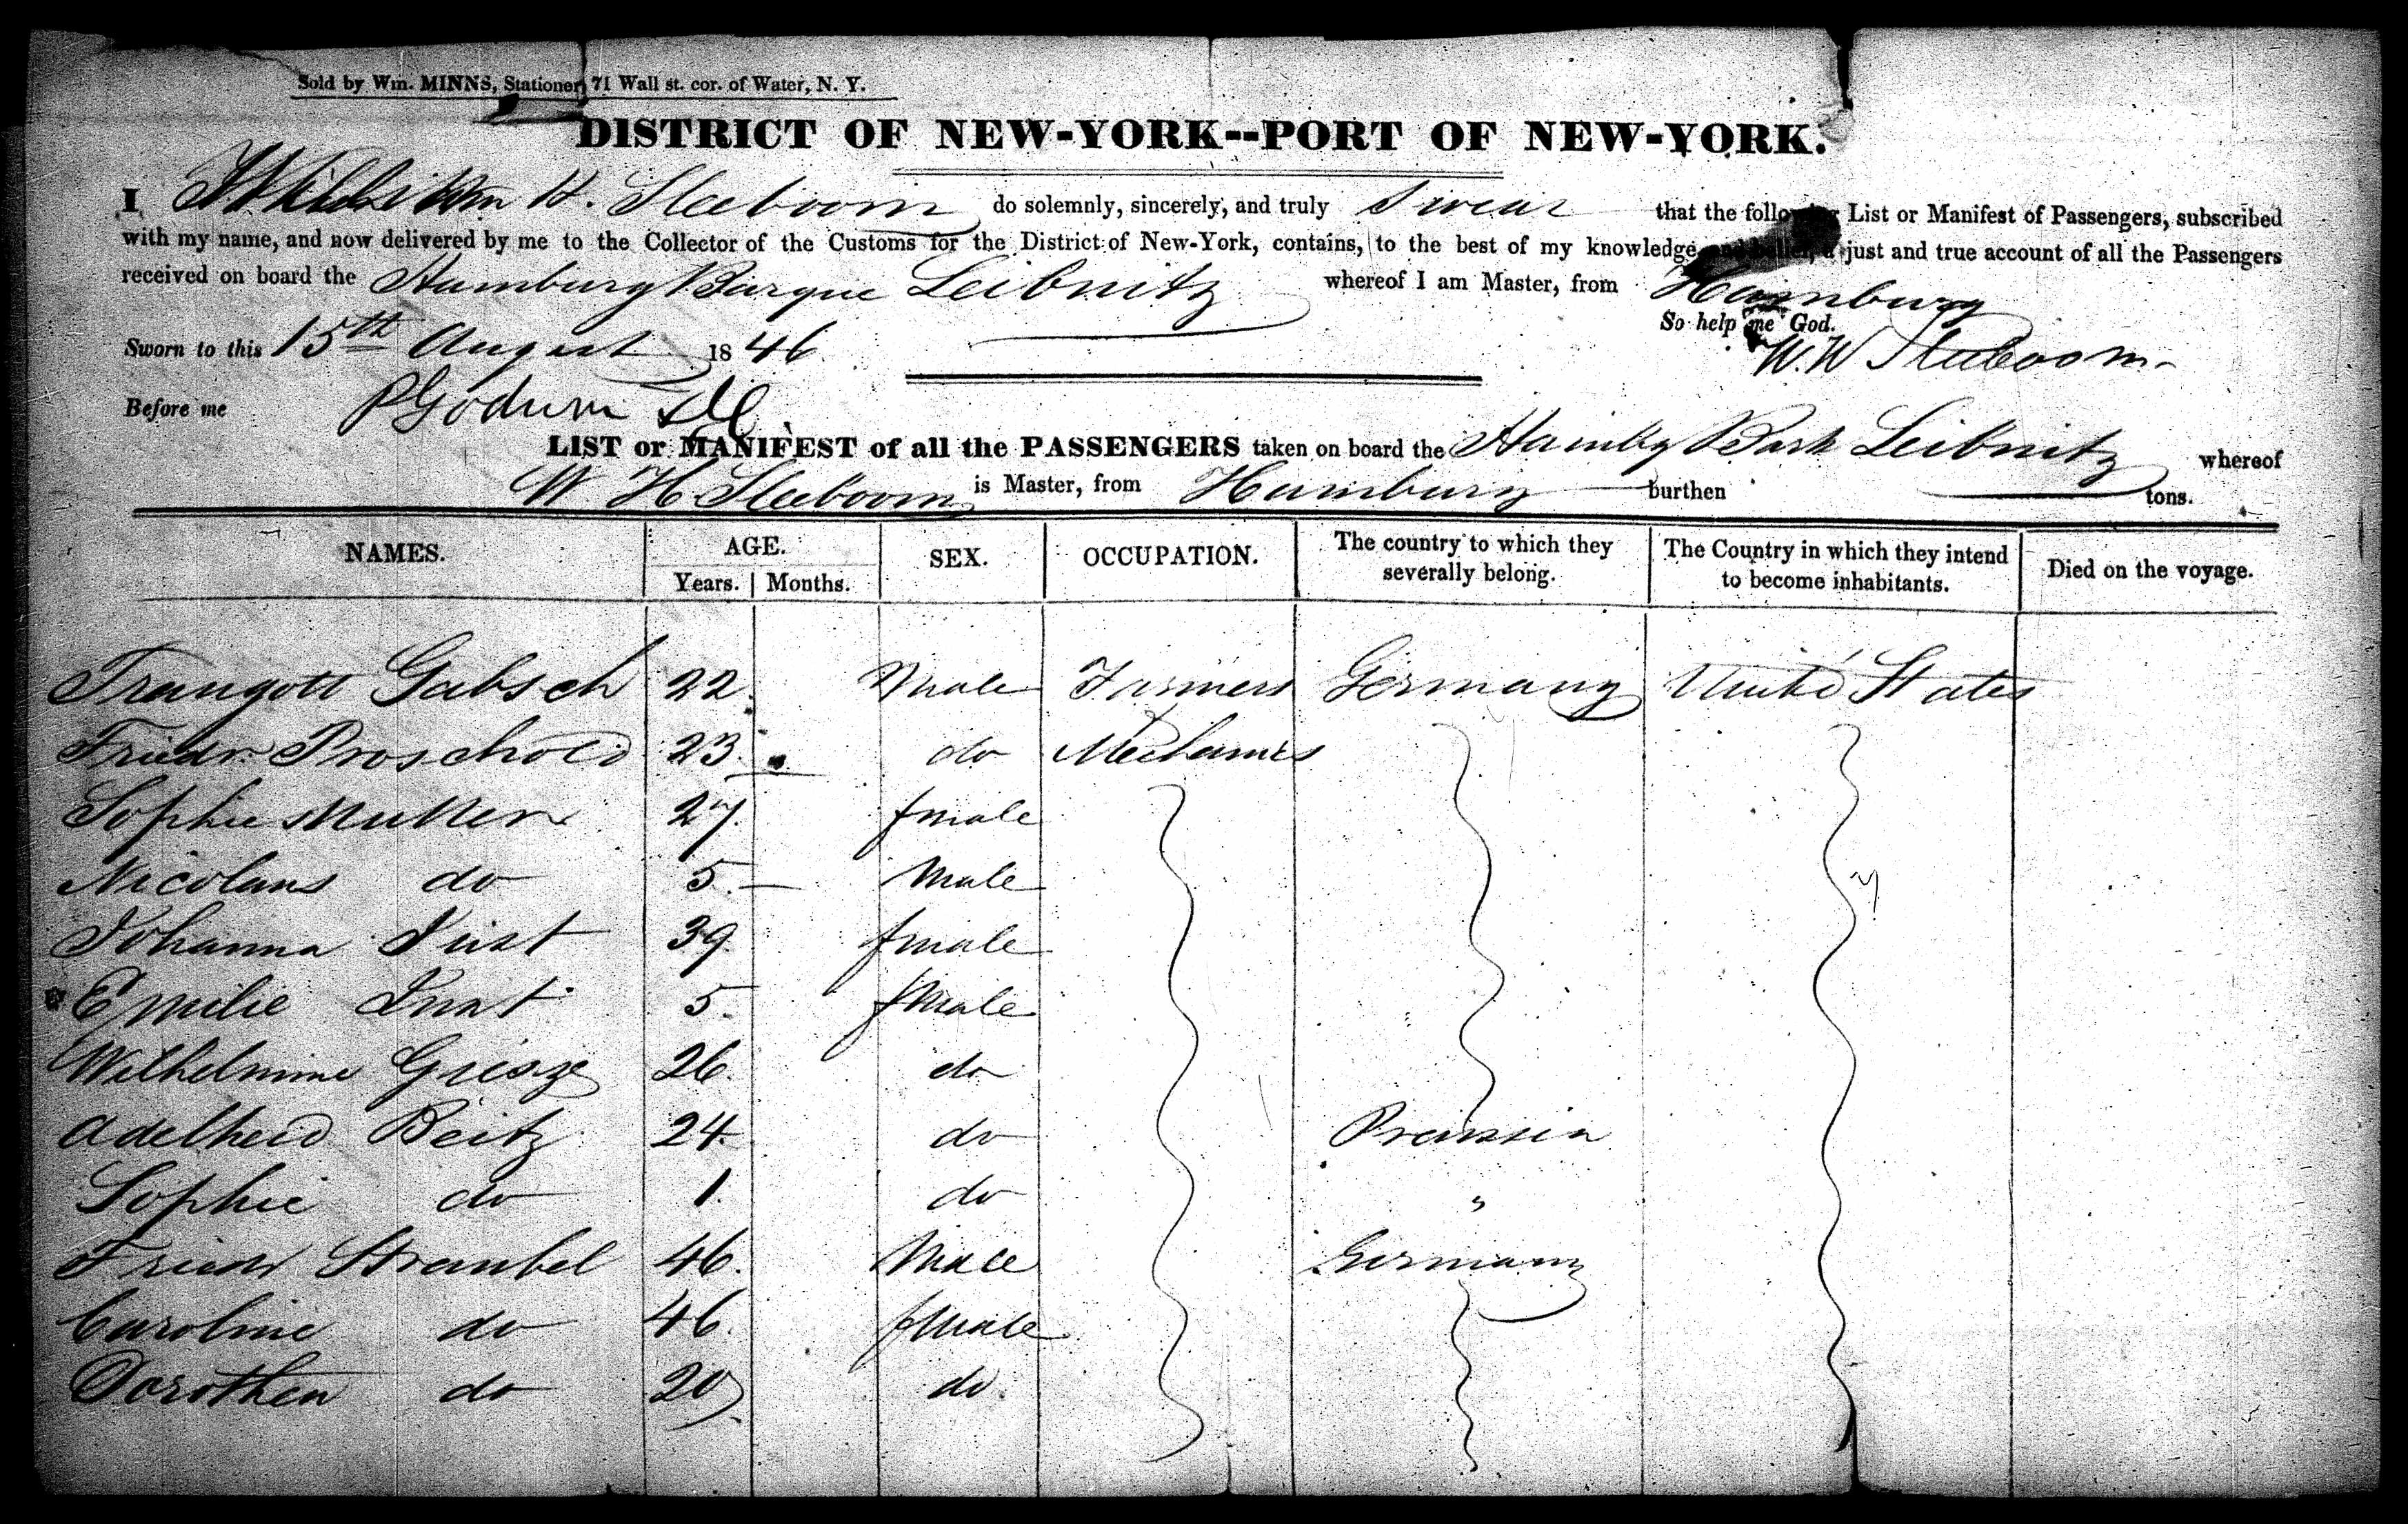 Sold by Wm. MINNS, Stationer, 71 Wall st. cor. of Water, N. Y.
DISTRICT OF NEW-YORK--PORT OF NEW-YORK.
I Wm H. Sleeboom do solemnly, sincerely, and truly swear that the following List or Manifest of Passengers, subscribed
with my name, and now delivered by me to the Collector of the Customs for the District of New-York, contains, to the best of my knowledge and belief, a just and true account of all the Passengers
received on board the Hamburg Barque Leibnitz whereof I am Master, from Hamburg
So help me God.
Sworn to this 15th August 1846
W. W Sleeboom
Before me PGodwin
LIST or MANIFEST of all the PASSENGERS taken on board the Hambg Bark Leibnitz whereof
W H Sleeboom is Master, from Hamburg burthen tons.
NAMES. AGE. Years. Months. SEX. OCCUPATION. The country to which they severally belong. The Country in which they intend to become inhabitants. Died on the voyage.
Traugott Gabsch 22 Male Farmers Germany United States
Friedr. Proschold 23 do Mechanics
Sophie Muller 27 fmale
Nicolaus do 5 Male
Johanna Just 39 fmale
Emilie Just 5 fmale
Wilhelmine Griesze 26 do
Adelheid Beitz 24 do Preussin
Sophie do 1 do "
Friedr Straubel 46 Male Germany
Caroline do 46 female
Dorothea do 20 do